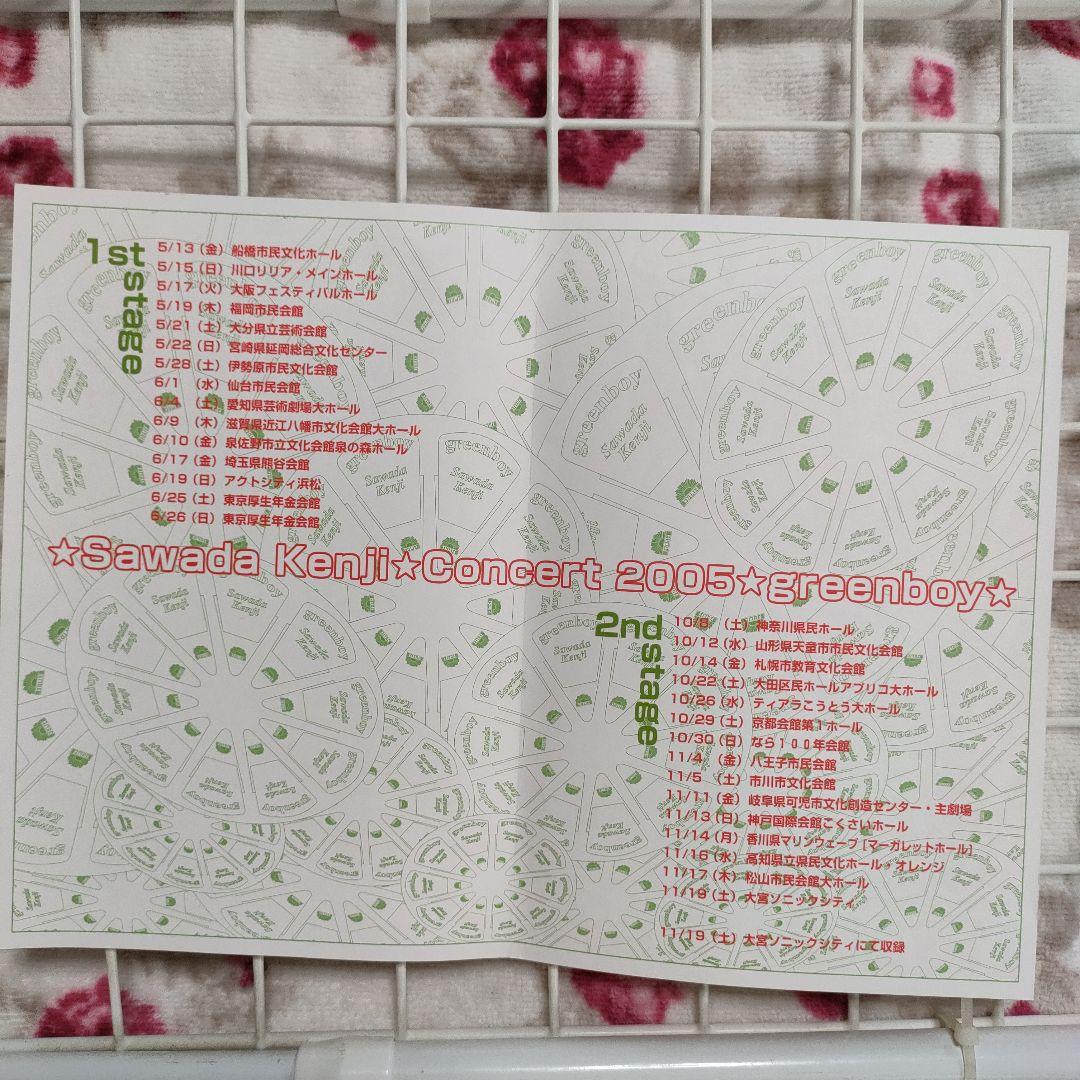 1st stage
5/13（金）船橋市民文化ホール
5/15（日）川口リリア・メインホール
5/17（火）大阪フェスティバルホール
5/19（木）福岡市民会館
5/21（土）大分県立芸術会館
5/22（日）宮崎県延岡総合文化センター
5/28（土）伊勢原市民文化会館
6/1　（水）仙台市民会館
6/4　（土）愛知県芸術劇場大ホール
6/9　（木）滋賀県近江八幡市文化会館大ホール
6/10（金）泉佐野市立文化会館泉の森ホール
6/17（金）埼玉県熊谷会館
6/19（日）アクトシティ浜松
6/25（土）東京厚生年金会館
6/26（日）東京厚生年金会館
★Sawada Kenji★Concert 2005★greenboy★
2nd stage
10/8　（土）神奈川県民ホール
10/12（水）山形県天童市市民文化会館
10/14（金）札幌市教育文化会館
10/22（土）大田区民ホールアプリコ大ホール
10/26（水）ティアラこうとう大ホール
10/29（土）京都会館第１ホール
10/30（日）なら１００年会館
11/4　（金）八王子市民会館
11/5　（土）市川市文化会館
11/11（金）岐阜県可児市文化創造センター・主劇場
11/13（日）神戸国際会館こくさいホール
11/14（月）香川県マリンウェーブ［マーガレットホール］
11/16（水）高知県立県民文化ホール・オレンジ
11/17（木）松山市民会館大ホール
11/19（土）大宮ソニックシティ
11/19（土）大宮ソニックシティにて収録
greenboy
Sawada
Kenji